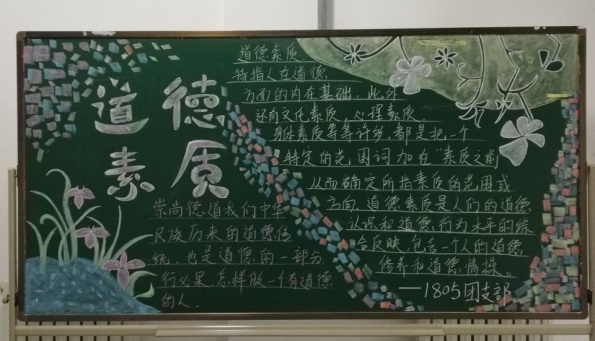 道德
素质
崇尚德道我们中华
民族历来的道德传
统,也是道德的一部分,
行必果,怎样做一个有道德
的人.
道德素质
特指人在道德
方面的内在基础,此外
还有文化素质,心理素质,
身体素质等等许多,都是把一个
特定的范围词加在"素质之前
从而确定所指素质的范围或
方向,道德素质是人们的道德
认识和道德行为水平的综
合反映,包含一个人的道德
修养和道德情操。
——1805团支部